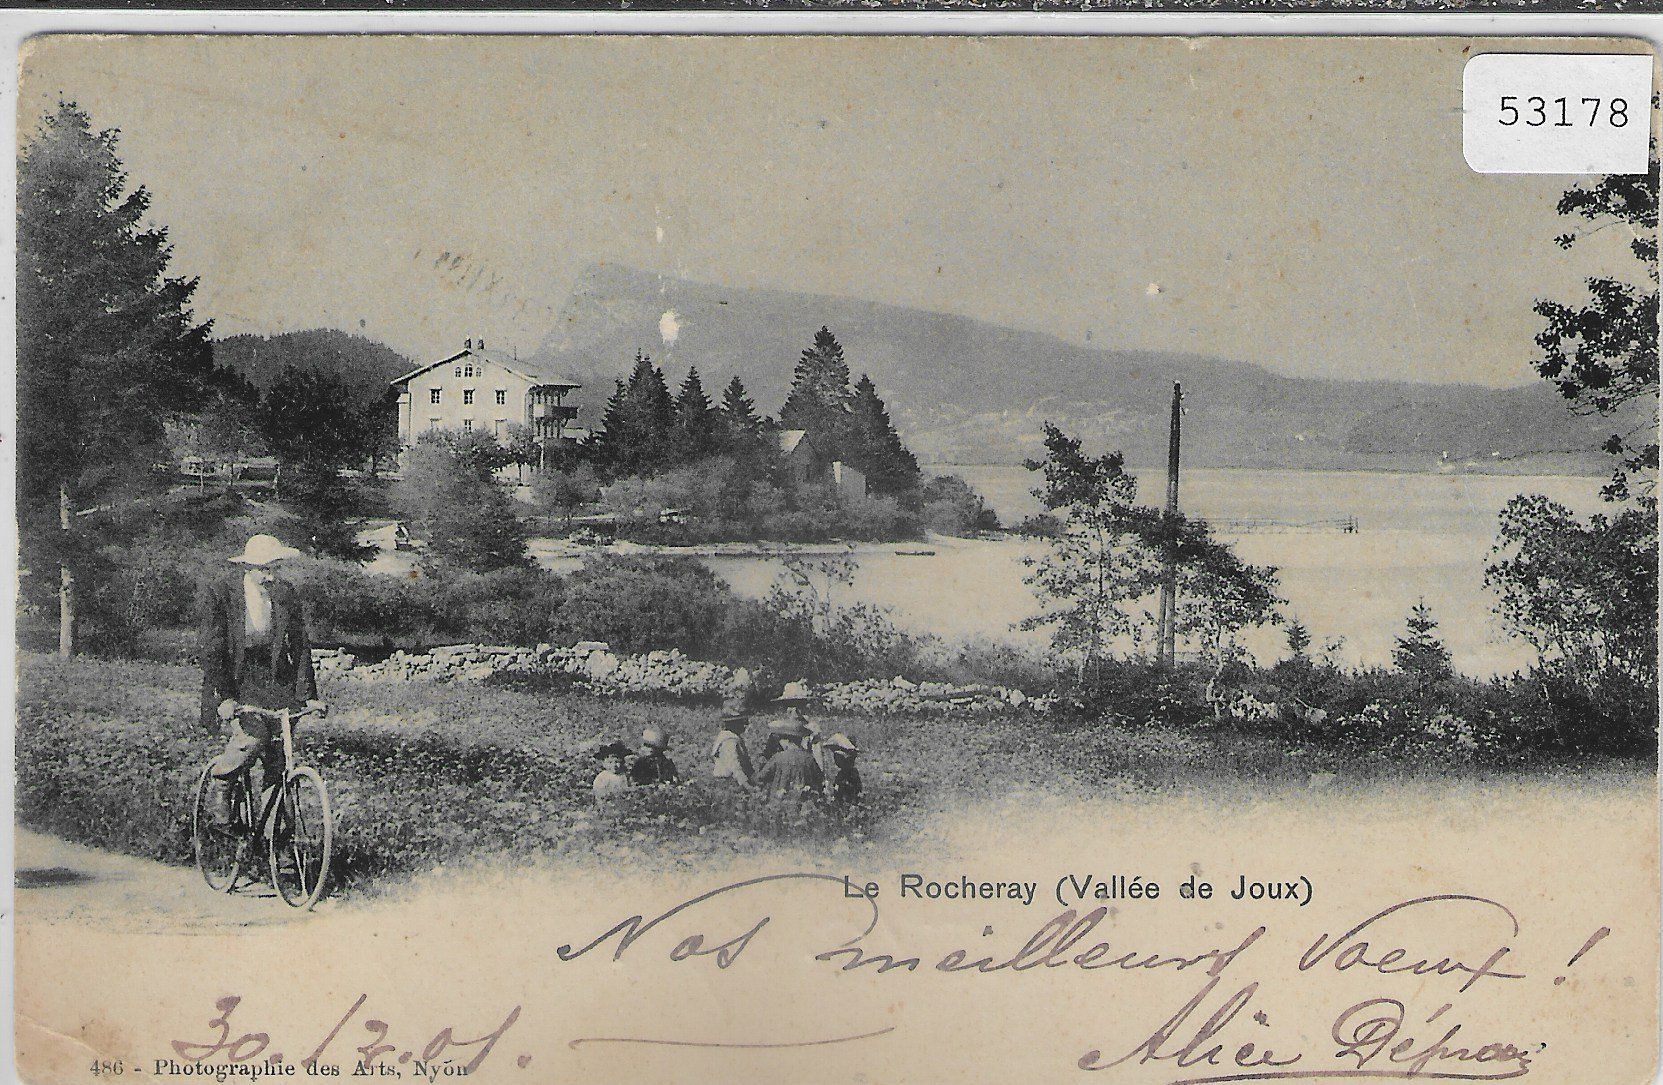 53178
Le Rocheray (Vallée de Joux)
Nos meilleurs voeux !
30.12.01.
Alice
486 - Photographie des Arts, Nyon